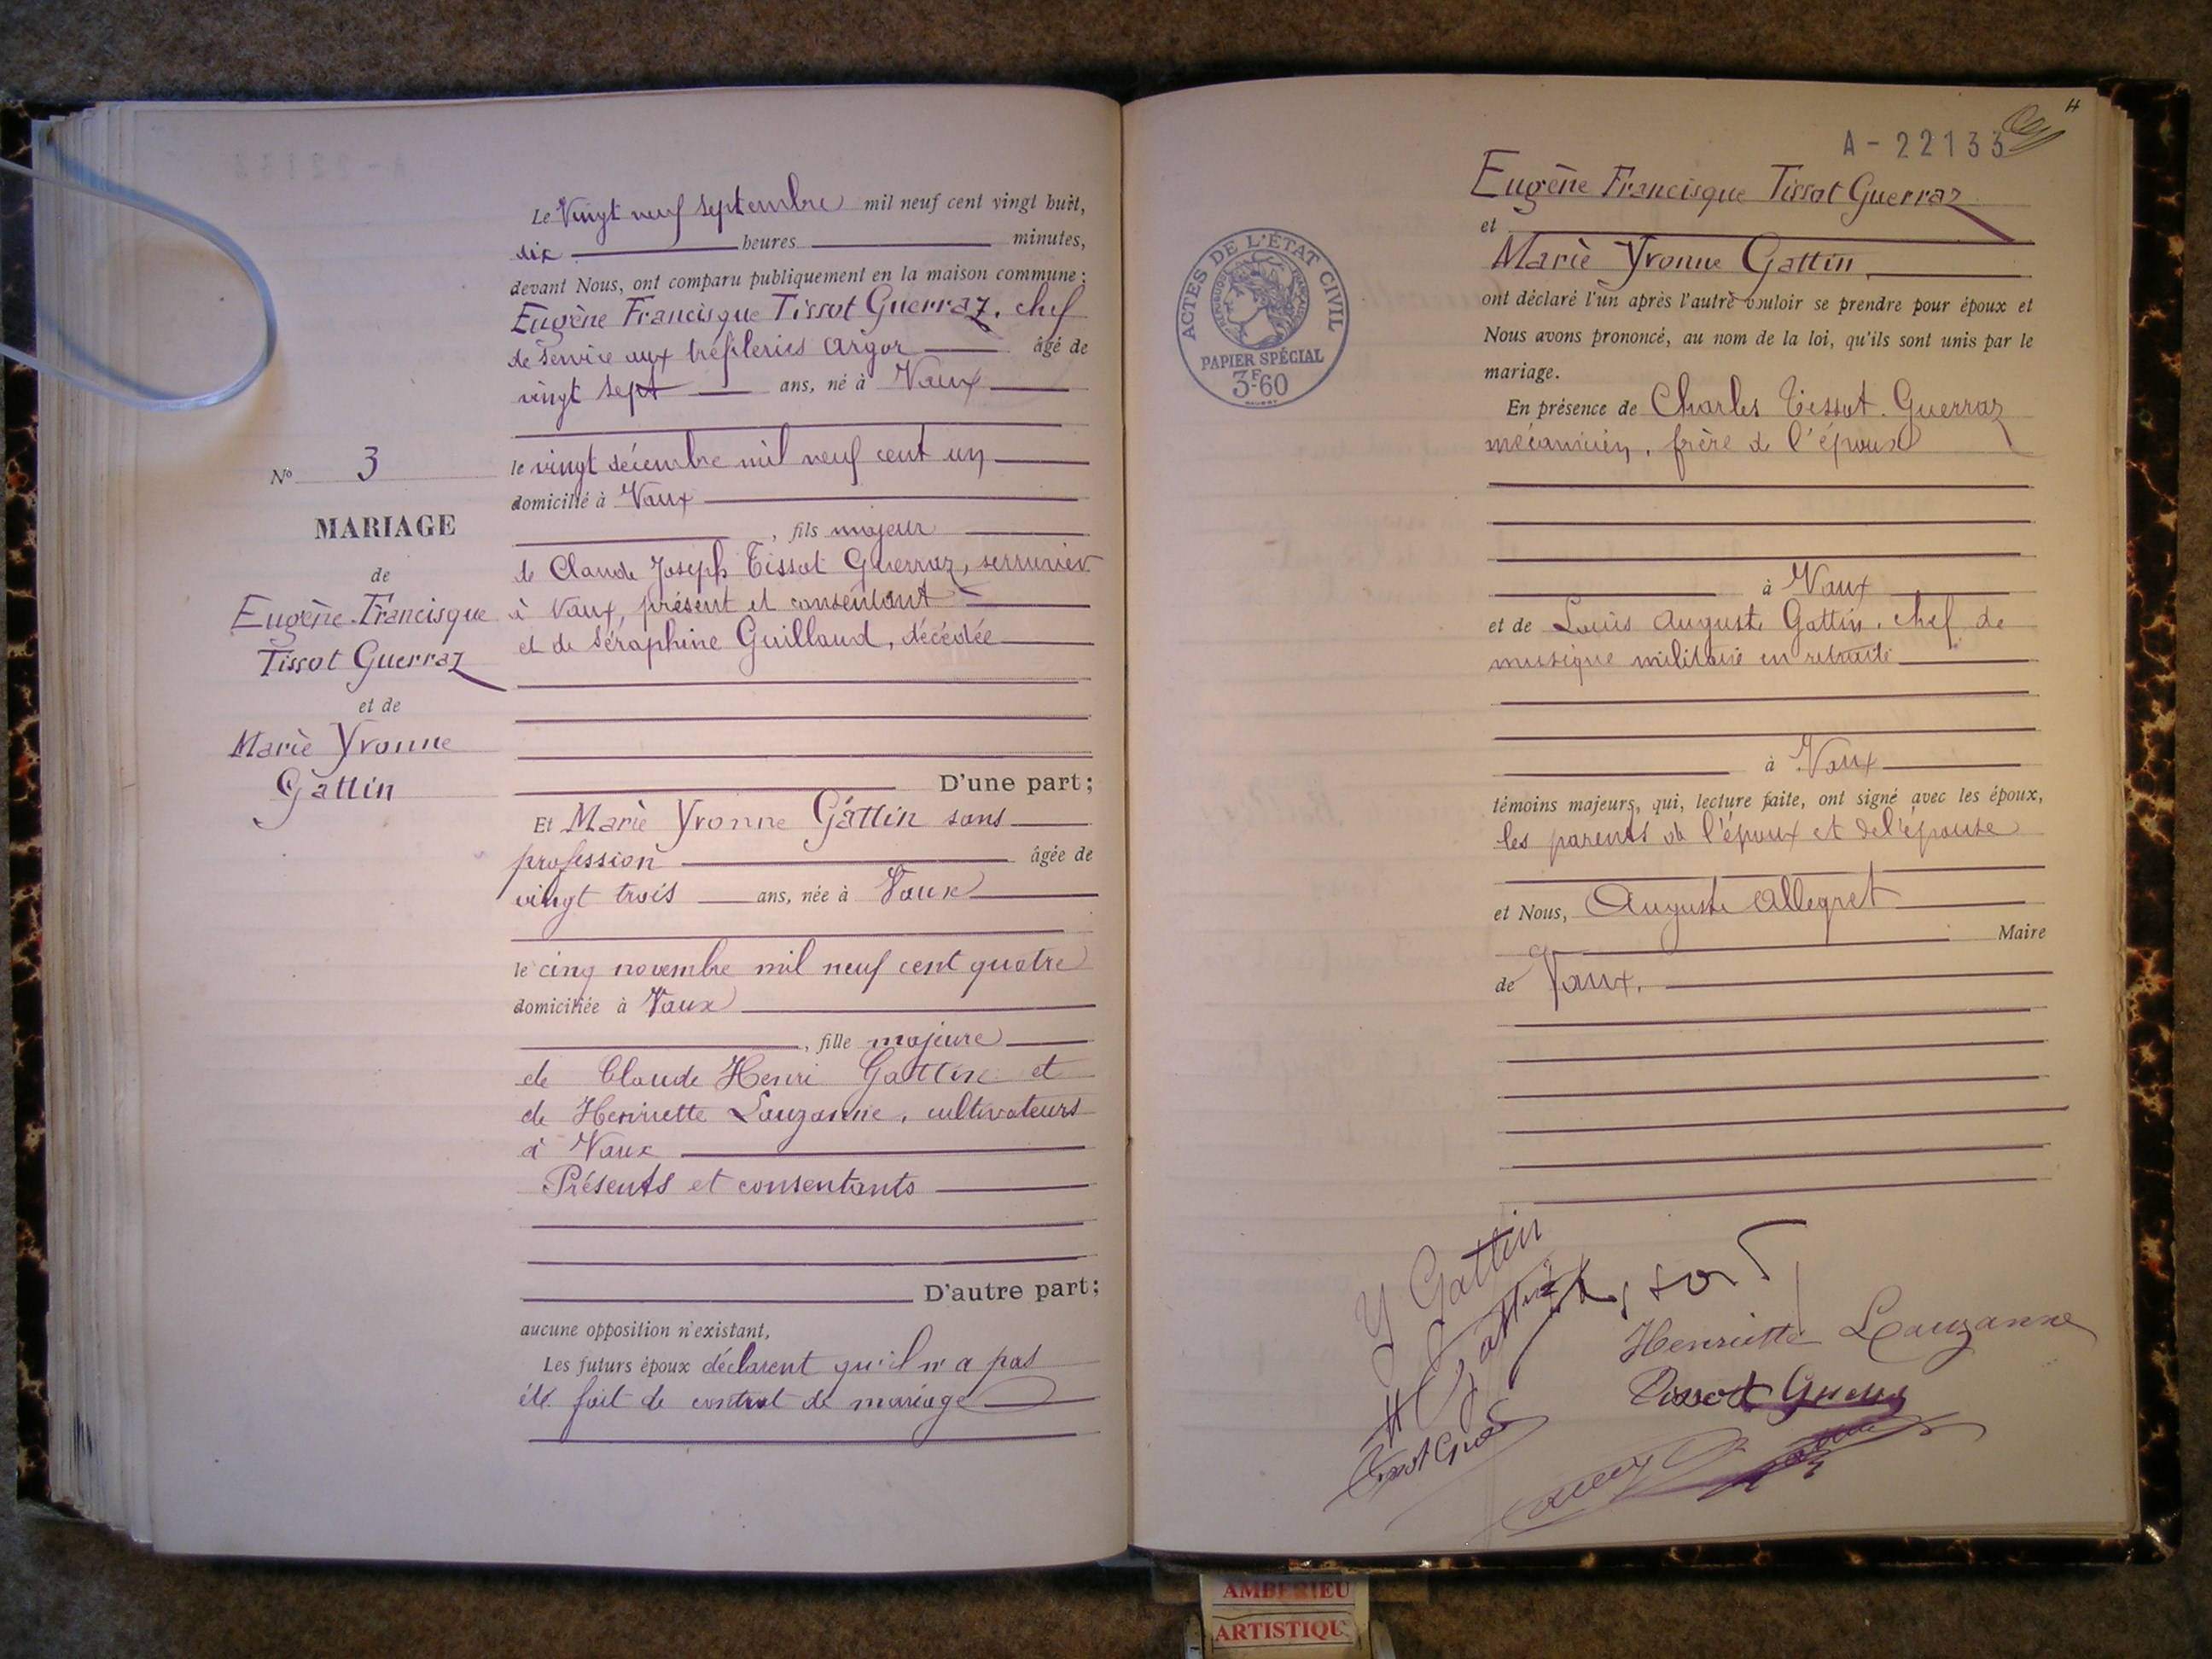 Le Vingt neuf septembre mil neuf cent vingt huit,
dix heures minutes,
devant Nous, ont comparu publiquement en la maison commune :
Eugène Francisque Tissot Guerraz, chef
de service aux tréfileries Argor âgé de
vingt sept ans, né à Vaux
le vingt décembre mil neuf cent un
domicilié à Vaux
, fils majeur
de Claude Joseph Tissot Guerraz, serrurier
à Vaux, présent et consentant
et de Séraphine Guillaud, décédée
D'une part;
Et Marie Yvonne Gattin sans
profession âgée de
vingt trois ans, née à Vaux
le cinq novembre mil neuf cent quatre
domiciliée à Vaux
, fille majeure
de Claude Henri Gattin et
de Henriette Lauzanne, cultivateurs
à Vaux
Présents et consentants
D'autre part;
aucune opposition n'existant,
Les futurs époux déclarent qu'il n'a pas
été fait de contrat de mariage
No 3
MARIAGE
de
Eugène Francisque
Tissot Guerraz
et de
Marie Yvonne
Gattin
A-22133
Eugène Francisque Tissot Guerraz
et
Marie Yvonne Gattin
ont déclaré l'un après l'autre vouloir se prendre pour époux et
Nous avons prononcé, au nom de la loi, qu'ils sont unis par le
mariage.
En présence de Charles Tissot-Guerraz
mécanicien, frère de l'époux
à Vaux
et de Louis Auguste Gattin, chef de
musique militaire en retraite
à Vaux
témoins majeurs, qui, lecture faite, ont signé avec les époux,
les parents de l'époux et de l'épouse
et Nous, Auguste Allegret
Maire
de Vaux.
ACTES DE L'ÉTAT CIVIL
RÉPUBLIQUE FRANÇAISE
PAPIER SPÉCIAL
3F.60
Y Gattin
H Gattin
Tissot
Henriette Lauzanne
Tissot Guerraz
AMBERIEU
ARTISTIQU